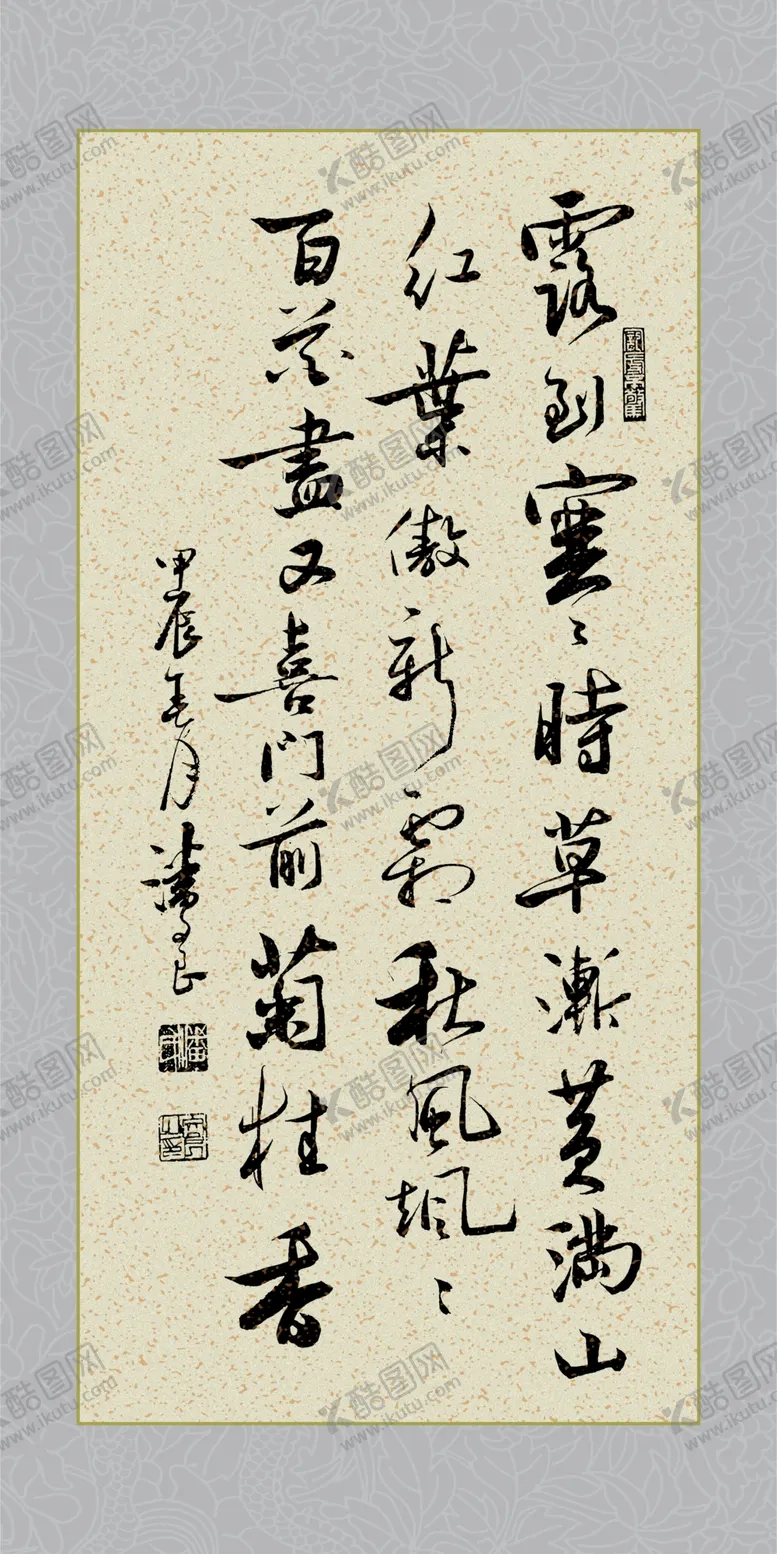 露到寒〻時草漸黄滿山
紅葉傲新霜秋風颯〻
百花盡又喜門前菊桂香
甲辰 月潘 良
酷图网
www.ikutu.com